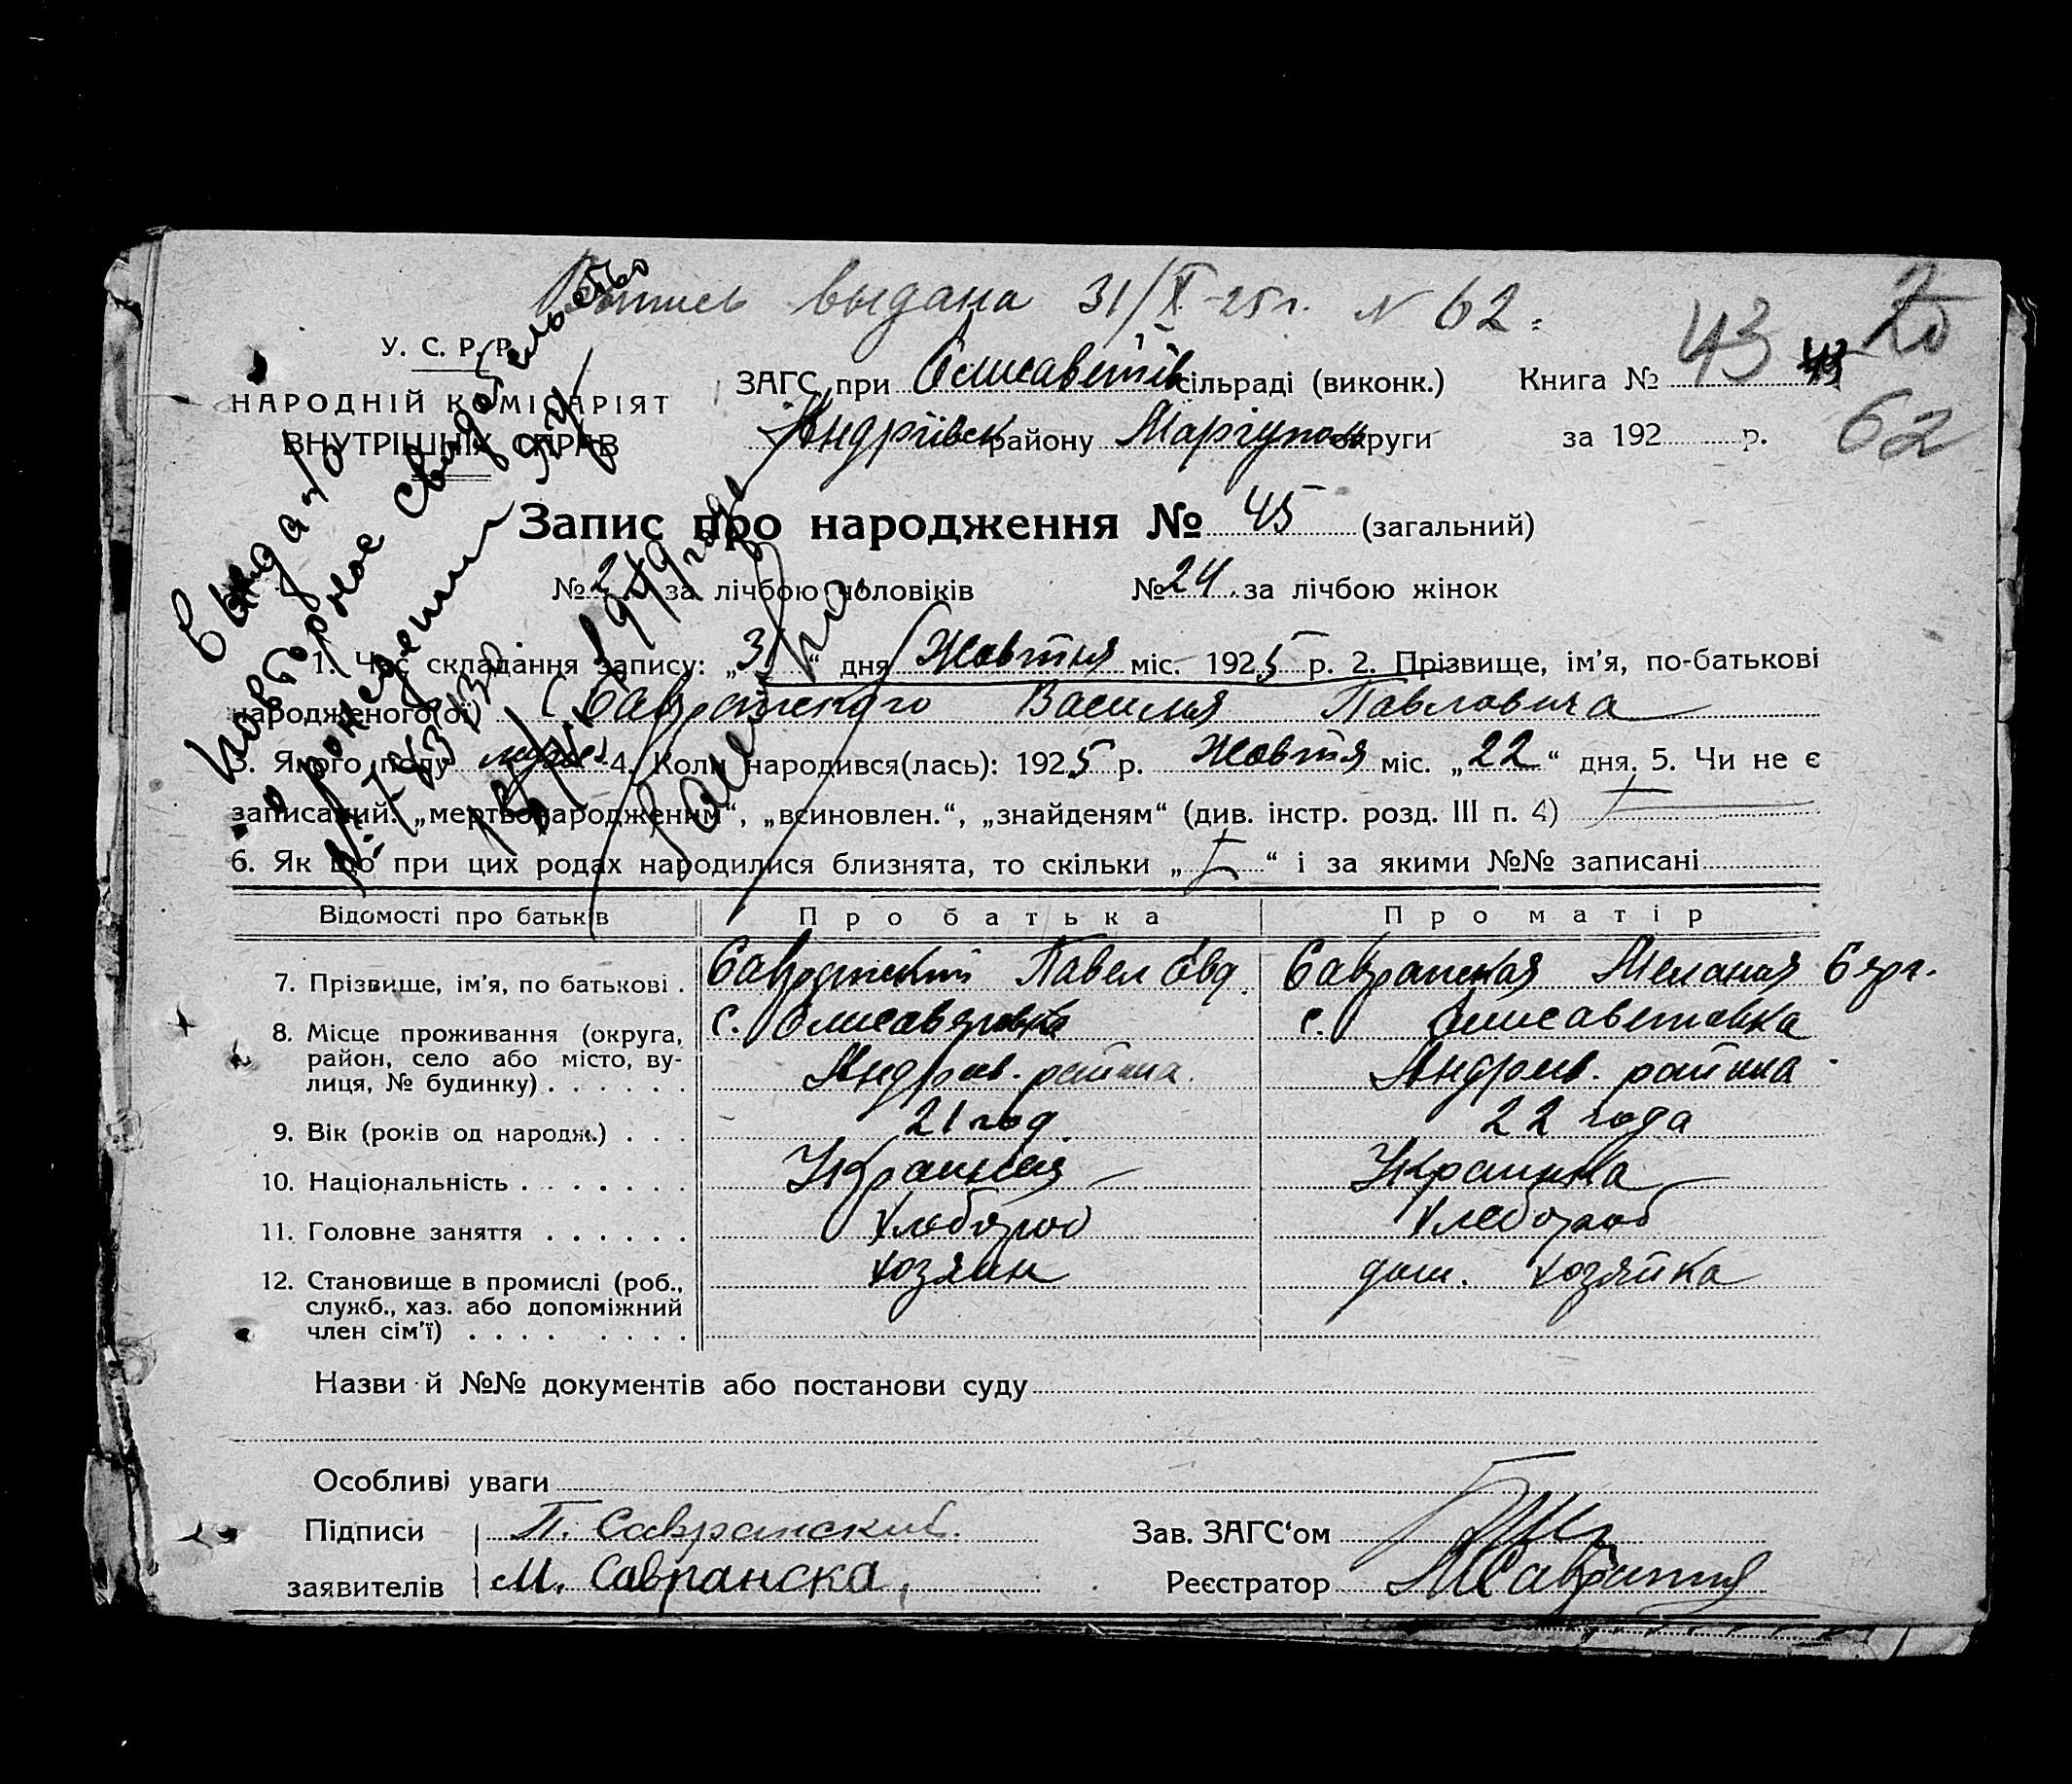 выдана 31/X-25 г. N 62.
У. С. Р. Р.
НАРОДНІЙ КОМІСАРІЯТ
ВНУТРІШНІХ СПРАВ
ЗАГС при Єлисаветів сільраді (виконк.)
Книга № 43 43
62
Андріївск району Маріупол округи
за 192 р.
Запис про народження № 45 (загальний)
№ за лічбою чоловіків № 24 за лічбою жінок
1. Час складання запису: „ “ дня Жовтня міс. 1925 р. 2. Прізвище, ім’я, по-батькові
народженого(ої) Савранского Василия Павловича
3. Якого полу 4. Коли народився(лась): 1925 р. Жовтня міс. „22“ дня. 5. Чи не є
записаний: „мертвонародженим“, „всиновлен.“, „знайденям“ (див. інстр. розд. III п. 4)
6. Як що при цих родах народилися близнята, то скільки „ “ і за якими №№ записані
Выдано
повторное свидетельство
о рождении
Відомості про батьків Про батька Про матір
7. Прізвище, ім’я, по батькові . Савранский Павел Савранская Мелания
8. Місце проживання (округа, район, село або місто, ву-лиця, № будинку) . . . . . . с. Елисаветовка с. Елисаветовка
Андрив. района. Андрив. района
9. Вік (років од народж.) . . . 21 год 22 года
10. Національність . . . . . . . Украинец Украинка
11. Головне заняття . . . . . . Хлебороб Хлебороб
12. Становище в промислі (роб., служб., хаз. або допоміжний член сім’ї) . . . . . . . . хозяин дом. хозяйка
Назви й №№ документів або постанови суду
Особливі уваги
Підписи П. Савранский Зав. ЗАГС‘ом
заявителів М. Савранска, Реєстратор